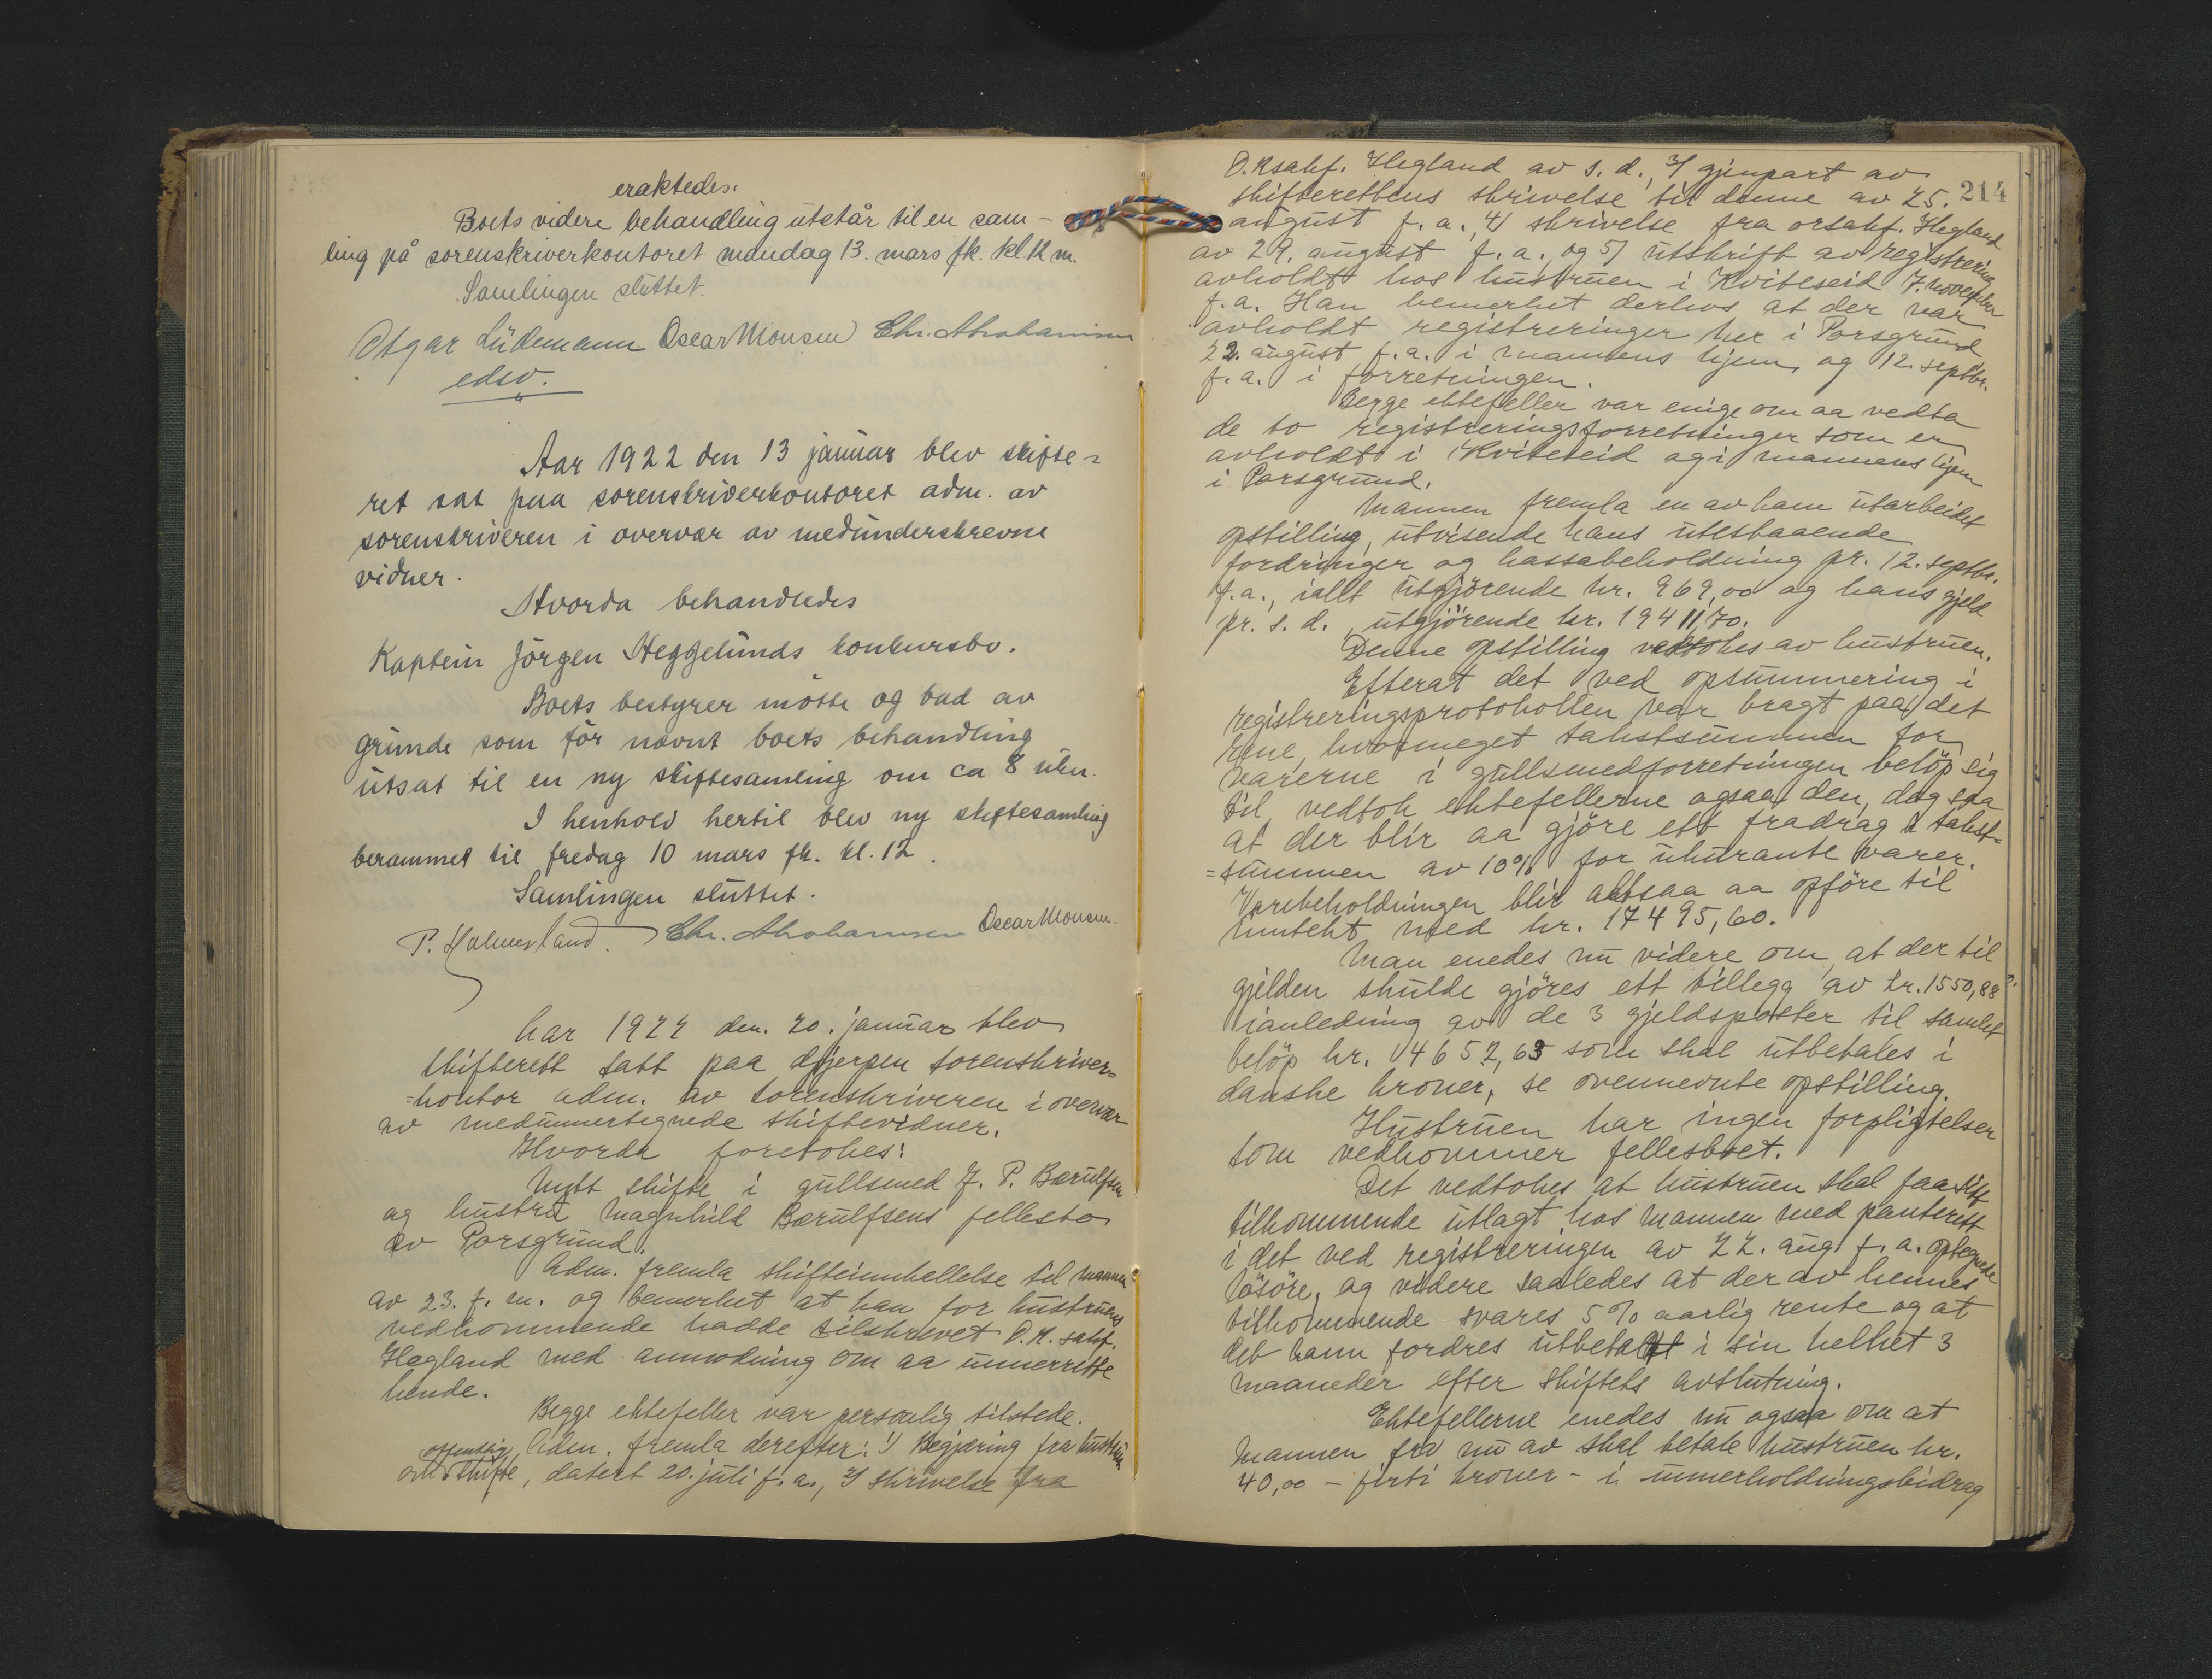 eraktedes.
Boets videre behandling utstår til en sam-
ling på sorenskriverkontoret mandag 13. mars fk. kl. 12 m.
Samlingen sluttet.
Otgar Lüdemann Oscar Monsen Chr. Abrahamsen
edsv.
Aar 1922 den 13 januar blev skifte-
ret sat paa sorenskriverkontoret adm. av
sorenskriveren i overvær av medunderskrevne
vidner.
Hvorda behandledes
Kaptein Jörgen Heggelunds konkursbo.
Boets bestyrer mötte og bad av
grunde som för nævnt boets behandling
utsat til en ny skiftesamling om ca 8 uker.
I henhold hertil blev ny skiftesamling
berammet til fredag 10 mars fk. kl. 12.
Samlingen sluttet.
P. Holmesland. Chr. Abrahamsen Oscar Monsen.
Aar 1922 den. 20. januar blev
skifterett satt paa Gjerpen sorenskriver=
=kontor adm. av sorenskriveren i overvær
av medunnertegnede skiftevidner.
Hvorda foretokes:
Nytt skifte i gullsmed J. P. Bærulfsen
og hustru Magnhild Bærulfsens fellesbo
av Porsgrund.
Adm. fremla skifteinnkallelse til mannen
av 23. f. m. og bemerket at han for hustruens
vedkommende hadde tilskrevet O.R. sakf.
Hegland med anmodning om aa unnerrette
hende.
Begge ektefeller var personlig tilstede.
Adm. fremla derefter: 1/ Begjæring fra hustruen
offentlig
om skifte, datert 20. juli f. a., 2/ skrivelse fra
214
O.Rsakf. Hegland av s. d., 3/ gjenpart av
skifterettens skrivelse til denne av 25.
august f. a., 4/ skrivelse fra orsakf. Hegland
av 29. august f. a., og 5/ utskrift av registrering
avholdt hos hustruen i Kviteseid 7. november
f. a. Han bemerket derhos at der var
avholdt registreringer her i Porsgrund
22. august f. a. i mannens hjem, og 12. septbr.
f. a. i forretningen.
Begge ektefeller var enige om aa vedta
de to registreringsforretninger som er
avholdt i Kviteseid og i mannens hjem
i Porsgrund.
Mannen fremla en av ham utarbeidet
opstilling, utvisende hans utestaaende
fordringer og kassabeholdning pr. 12. septbr.
f. a., iallt utgjörende kr. 969,00 og hans gjeld
pr. s. d., utgjörende kr. 19411,70.
Denne opstilling vedtokes av hustruen.
Efterat det ved opsummering i
registreringsprotokollen var bragt paa det
rene, hvormeget takstsummen for
varerne i gullsmedforretningen belöp sig
til vedtok ektefellerne ogsaa den, dog saa
at der blir aa gjöre ett fradrag i takst=
=summen av 10% for ukurante varer.
Varebeholdningen blir altsaa aa opföre til
inntekt med kr. 17495,60.
Man enedes nu videre om, at der til
gjelden skulde gjöres ett tillegg av kr. 1550,88
ianledning av de 3 gjeldsposter til samlet
belöp kr. 4652,63 som skal utbetales i
danske kroner, se ovennevnte opstilling.
Hustruen har ingen forpligtelser
som vedkommer fellesboet.
Det vedtokes at hustruen skal faa sitt
tilkommende utlagt hos mannen med panterett
i det ved registreringen av 22. aug. f. a. optegnede
lösöre, og videre saaledes at der av hennes
tilkommende svares 5% aarlig rente og at
det kann fordres utbetalt i sin helhet 3
maaneder efter skiftets avslutning.
Ektefellerne enedes nu ogsaa om at
mannen fra nu av skal betale hustruen kr.
40,00 - firti kroner - i unnerholdningsbidrag